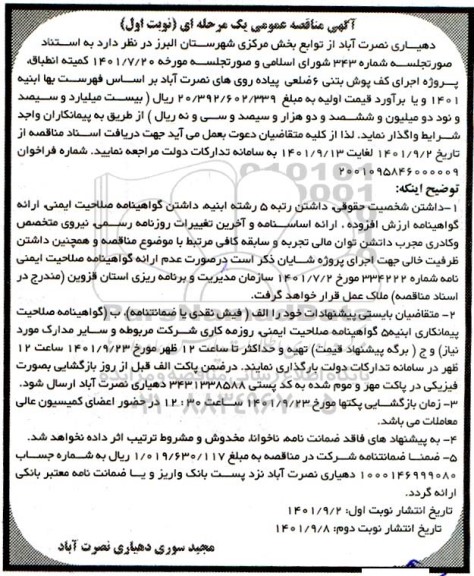 آگهی مناقصه عمومی یک مرحله ای (نوبت اول)
دهیاری نصرت آباد از توابع بخش مرکزی شهرستان البرز در نظر دارد به استناد
صورتجلسه شماره ۳۴۳ شورای اسلامی و صورتجلسه مورخه ۱۴۰۱/۷/۲۰ کمیته انطباق،
پروژه اجرای کف پوش بتنی ۶ضلعی پیاده روی های نصرت آباد بر اساس فهرست بها ابنیه
۱۴۰۱ و با برآورد قیمت اولیه به مبلغ ۲۰/۳۹۲/۶۰۲/۳۳۹ ریال ( بیست میلیارد و سیصد
و نود دو میلیون و ششصد و دو هزار و سیصد و سی و نه ریال ) از طریق به پیمانکاران واجد
شرایط واگذار نماید. لذا از کلیه متقاضیان دعوت بعمل می آید جهت دریافت اسناد مناقصه از
تاریخ ۱۴۰۱/۹/۲ لغایت ۱۴۰۱/۹/۱۳ به سامانه تدارکات دولت مراجعه نمایید. شماره فراخوان
۲۰۰۱۰۹۵۸۴۶۰۰۰۰۰۹
توضیح اینکه:
۱-داشتن شخصیت حقوقی، داشتن رتبه ۵ رشته ابنیه، داشتن گواهینامه صلاحیت ایمنی، ارائه
گواهینامه ارزش افزوده . ارائه اساسنامه و آخرین تغییرات روزنامه رسمی، نیروی متخصص
وکادری مجرب داتشن توان مالی تجربه و سابقه کافی مرتبط با موضوع مناقصه و همچنین داشتن
ظرفیت خالی جهت اجرای پروژه شایان ذکر است درصورت عدم ارائه گواهینامه صلاحیت ایمنی
نامه شماره ۳۳۴۲۲۲ مورخ ۱۴۰۱/۷/۲ سازمان مدیریت و برنامه ریزی استان قزوین (مندرج در
اسناد مناقصه) ملاک عمل قرار خواهد گرفت.
۲- متقاضیان بایستی پیشنهادات خود را الف ( فیش نقدی یا ضمانتنامه)، ب(گواهینامه صلاحیت
پیمانکاری ابنیه۵ گواهینامه صلاحیت ایمنی، روزمه کاری شرکت مربوطه و سایر مدارک مورد
نیاز) و ج ( برگه پیشنهاد قیمت) تهیه و حداکثر تا ساعت ۱۲ ظهر مورخ ۱۴۰۱/۹/۲۳ ساعت ۱۲
ظهر در سامانه تدارکات دولت بارگذاری نمایند. درضمن پاکت الف قبل از روز بازگشایی بصورت
فیزیکی در پاکت مهر و موم شده به کد پستی ۳۴۳۱۳۳۸۵۸۸ دهیاری نصرت آباد ارسال شود.
۳- زمان بازگشایی پکتها مورخ ۱۴۰۱/۹/۲۳ ساعت ۱۲:۳۰ در حضور اعضای کمیسیون عالی
معاملات می باشد.
۴- به پیشنهاد های فاقد ضمانت نامه، ناخوانا، مخدوش و مشروط ترتیب اثر داده نخواهد شد.
۵- ضمنا ضمانتنامه شرکت در مناقصه به مبلغ ۱/۰۱۹/۶۳۰/۱۱۷ ریال به شماره حساب
۱۰۰۰۱۴۶۹۹۹۰۸۰ دهیاری نصرت آباد نزد پست بانک واریز و یا ضمانت نامه معتبر بانکی
ارائه گردد.
تاریخ انتشار نوبت اول: ۱۴۰۱/۹/۲
تاریخ انتشار نوبت دوم: ۱۴۰۱/۹/۸
مجید سوری دهیاری نصرت آباد